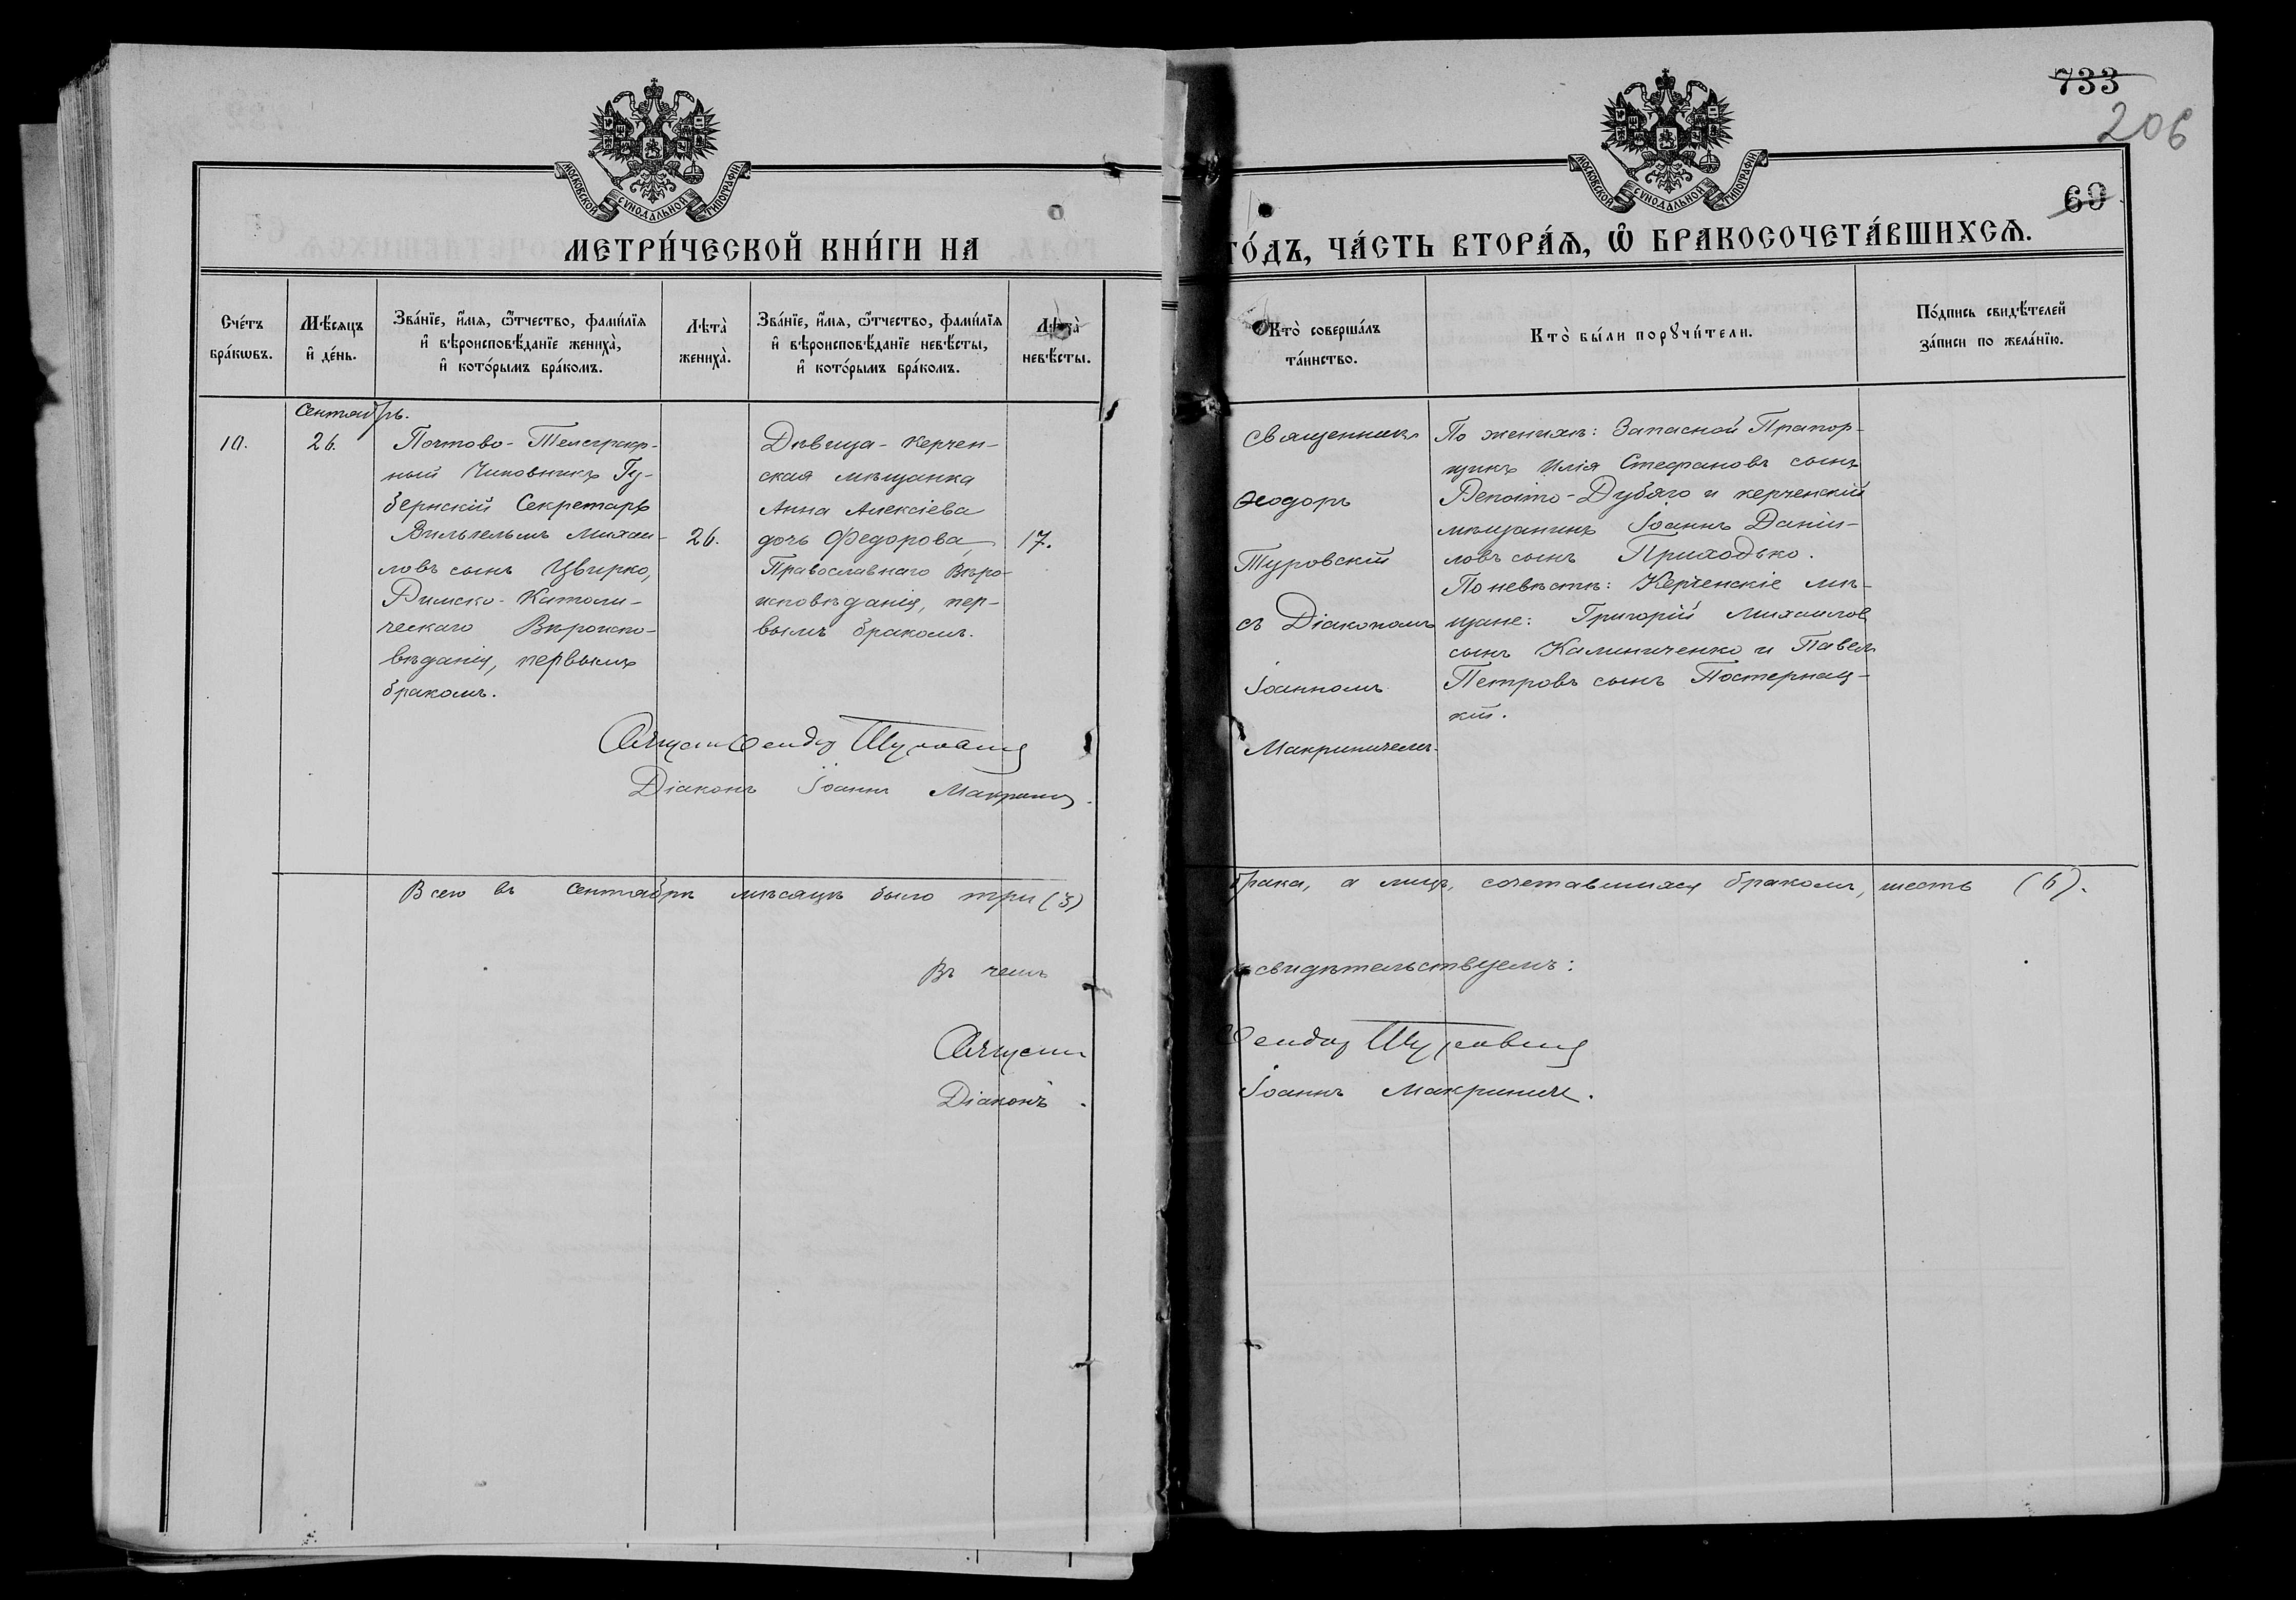 733
206
69
МОСКОВСКОЙ СѴНОДАЛЬНОЙ ТИПОГРАФІИ
МОСКОВСКОЙ СѴНОДАЛЬНОЙ ТИПОГРАФІИ
МЕТРИ́ЧЕСКОЙ КНИ́ГИ НА
ГО́ДЪ, ЧА́СТЬ ВТОРА́Я, Ѽ БРАКОСОЧЕТА́ВШИХСЯ.
Сче́тъ
бра́кѡвъ.
Мѣ́сяцъ
и҆ де́нь.
Зва́нїе, и҆́мя, ѻ҆́тчество, фами́лїя
и҆ вѣроисповѣ́данїе жениха̀,
и҆ кото́рымъ бра́комъ.
Лѣта̀
жениха̀.
Зва́нїе, и҆́мя, ѻ҆́тчество, фами́лїя
и҆ вѣроисповѣ́данїе невѣ́сты,
и҆ кото́рымъ бра́комъ.
Лѣта̀
невѣ́сты.
Кто̀ соверша́лъ
та́инство.
Кто̀ бы́ли порꙋчи́тели.
По́дпись свидѣ́телей
за́писи по жела́нїю.
Сентябрь.
10.
26.
Почтово-Телеграф-
ный Чиновникъ Гу-
бернскій Секретарь
Вильгельмъ Михаи-
ловъ сынъ Цвирко,
Римско-Католи-
ческаго Вѣроиспо-
вѣданія, первымъ
бракомъ.
26.
Дѣвица-Керчен-
ская мѣщанка
Анна Алексіева
дочь Федорова,
Православнаго Вѣро-
исповѣданія, пер-
вымъ бракомъ.
17.
Священникъ
Ѳеодоръ
Туровскій
съ Діакономъ
Іоанномъ
Макриничемъ.
По женихѣ: Запасной Прапор-
щикъ Илія Стефановъ сынъ
Репоито-Дубяго и керченскій
мѣщанинъ Іоаннъ Даніи-
ловъ сынъ Приходько.
По невѣстѣ: Керченскіе мѣ-
щане: Григорій Михаиловъ
сынъ Калиниченко и Павелъ
Петровъ сынъ Постернац-
кій.
Священ Ѳеодор Туровскій
Діаконъ Іоаннъ Макринич.
Всего въ Сентябрѣ мѣсяцѣ было три (3)
брака, а лицъ, сочетавшихся бракомъ, шесть (6).
Въ чемъ
и свидѣтельствуемъ:
Священ
Ѳеодор Туровскій
Діаконъ
Іоаннъ Макринич.